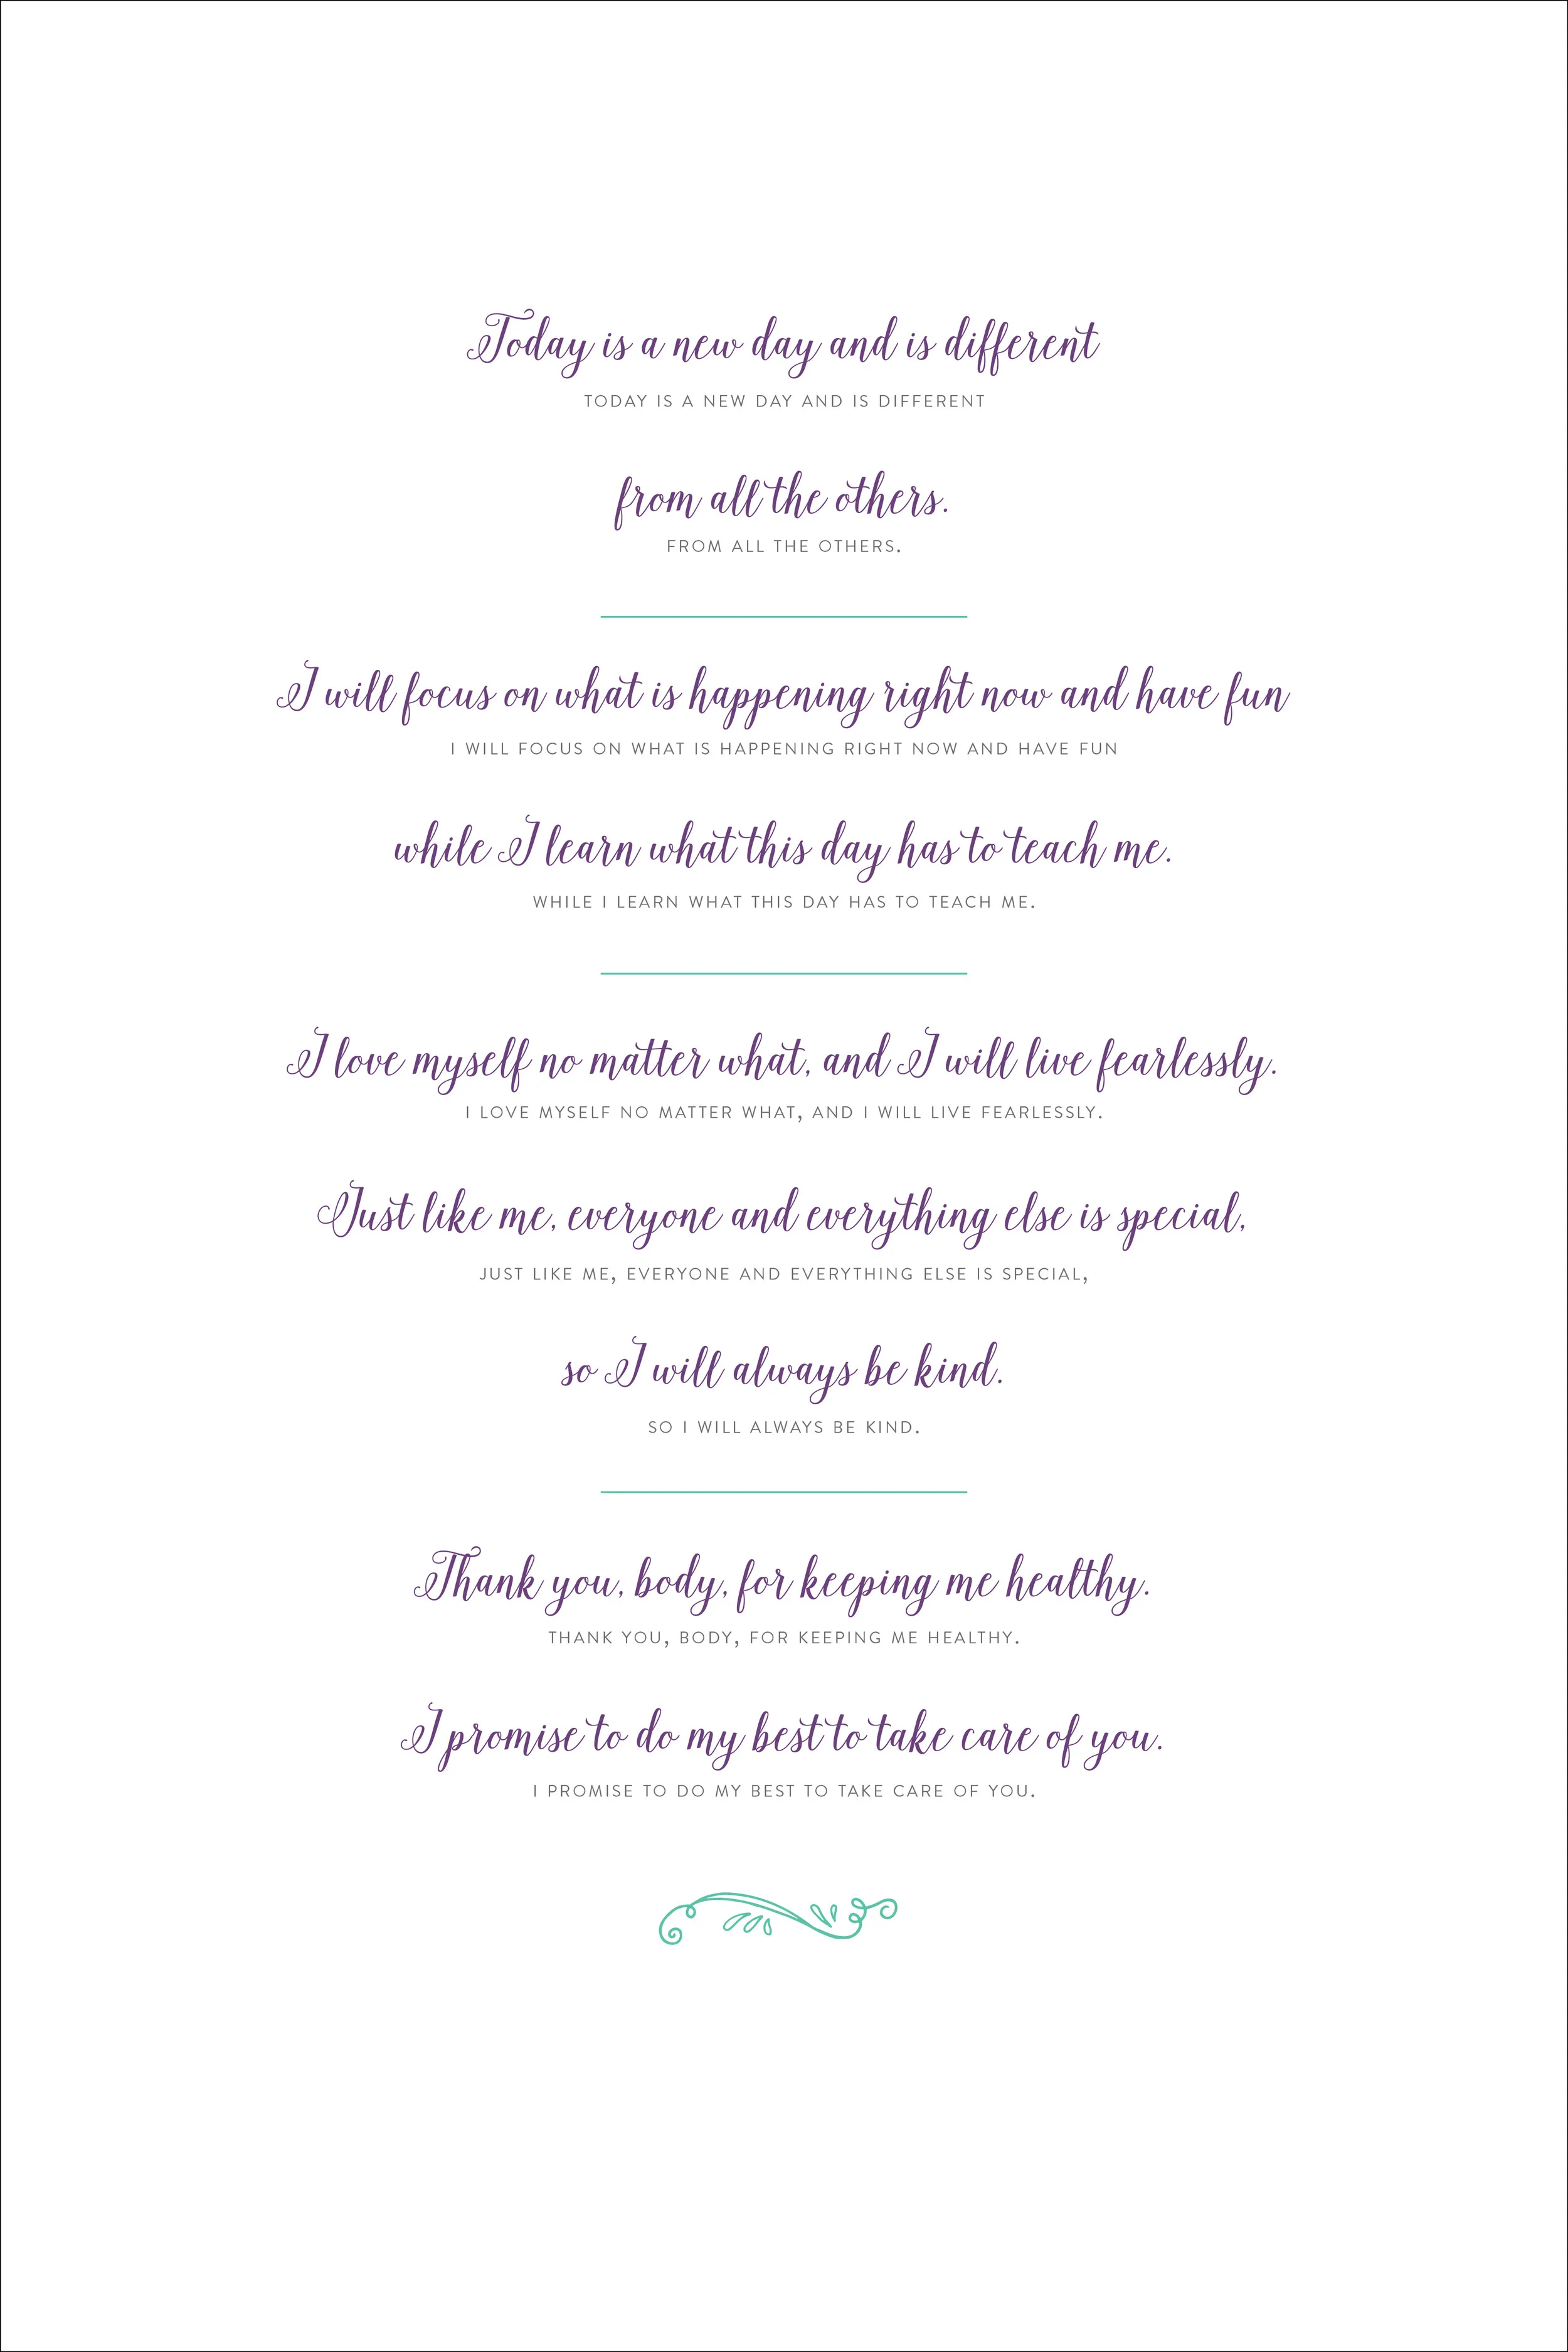 Today is a new day and is different
TODAY IS A NEW DAY AND IS DIFFERENT
from all the others.
FROM ALL THE OTHERS.
I will focus on what is happening right now and have fun
I WILL FOCUS ON WHAT IS HAPPENING RIGHT NOW AND HAVE FUN
while I learn what this day has to teach me.
WHILE I LEARN WHAT THIS DAY HAS TO TEACH ME.
I love myself no matter what, and I will live fearlessly.
I LOVE MYSELF NO MATTER WHAT, AND I WILL LIVE FEARLESSLY.
Just like me, everyone and everything else is special,
JUST LIKE ME, EVERYONE AND EVERYTHING ELSE IS SPECIAL,
so I will always be kind.
SO I WILL ALWAYS BE KIND.
Thank you, body, for keeping me healthy.
THANK YOU, BODY, FOR KEEPING ME HEALTHY.
I promise to do my best to take care of you.
I PROMISE TO DO MY BEST TO TAKE CARE OF YOU.